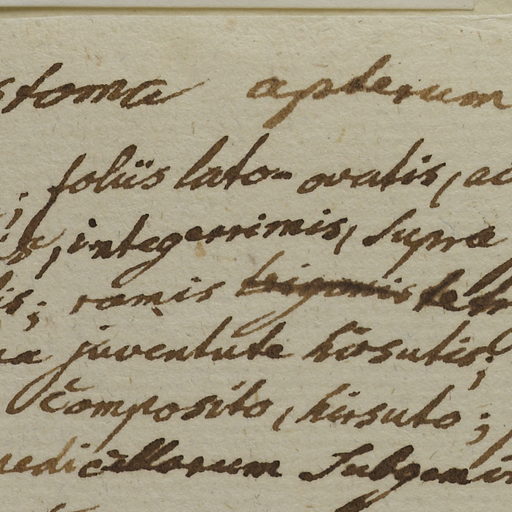 stoma apterum
; foliis lato-ovatis, ac
, integerrimis, supra
is; ramis trigonis tetr
juventute hirsutis;
composito, hirsuto;
pedicellorum subgemin